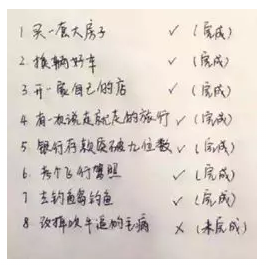 1 买一套大房子 ✓ (完成)
2. 换辆好车 ✓ (完成)
3 开一家自己的店 ✓ (完成)
4. 有一次说走就走的旅行 ✓ (完成)
5. 银行存款突破九位数 ✓ (完成)
6. 考个飞行驾照 ✓ (完成)
7 去钓鱼岛钓鱼 ✓ (完成)
8. 改掉吹牛逼的毛病 × (未完成)